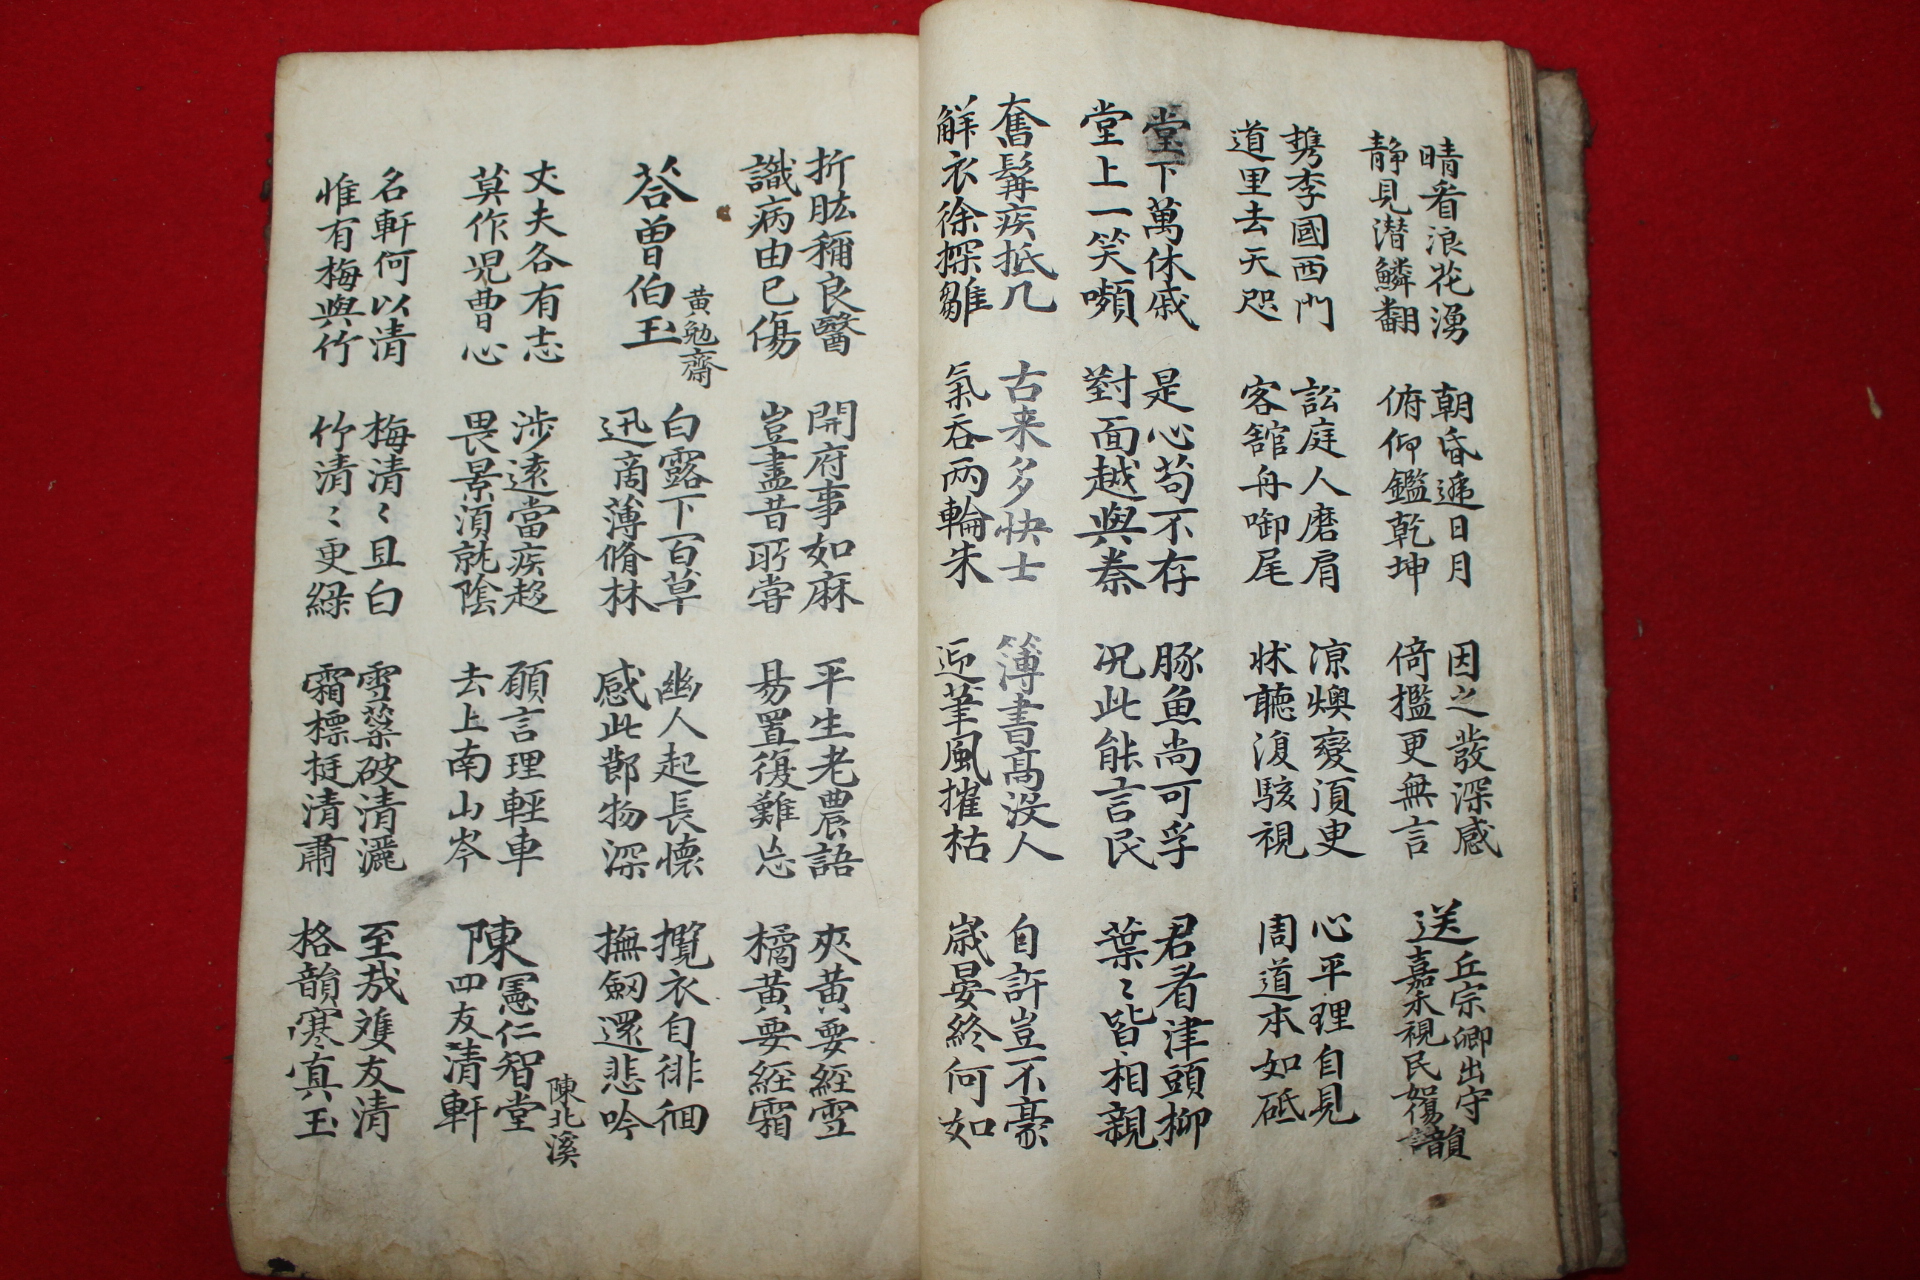 晴看浪花湧
静見潜鱗翻
朝昏遞日月
俯仰鑑乾坤
因之發深感
倚檻更無言
送丘宗卿出守
嘉禾視民如傷韻
携李國西門
道里去天咫
訟庭人磨肩
客舘舟啣尾
凉燠變須臾
狀聽復駭視
心平理自見
周道本如砥
堂下萬休戚
堂上一笑嚬
是心苟不存
對面越與秦
豚魚尚可孚
况此能言民
君看津頭柳
葉〻皆相親
奮髯疾抵几
解衣徐探雛
古来多快士
氣吞两輪朱
簿書高没人
迎筆風摧枯
自許豈不豪
歳晏終何如
折肱稱良醫
識病由已傷
開府事如麻
豈盡昔所嘗
平生老農語
易置復難忘
夾黄要經雪
橘黄要經霜
荅曾伯玉
黄勉齋
白露下百草
迅商薄脩林
幽人起長懐
感此節物深
攬衣自徘徊
撫劒還悲吟
丈夫各有志
莫作児曹心
涉遠當疾趍
畏景須就陰
願言理輕車
去上南山岑
陳憲仁智堂
四友清軒
陳北溪
名軒何以清
惟有梅與竹
梅清〻且白
竹清〻更緑
雪蘂破清灑
霜標挺清肅
至哉雙友清
格韻寒真玉